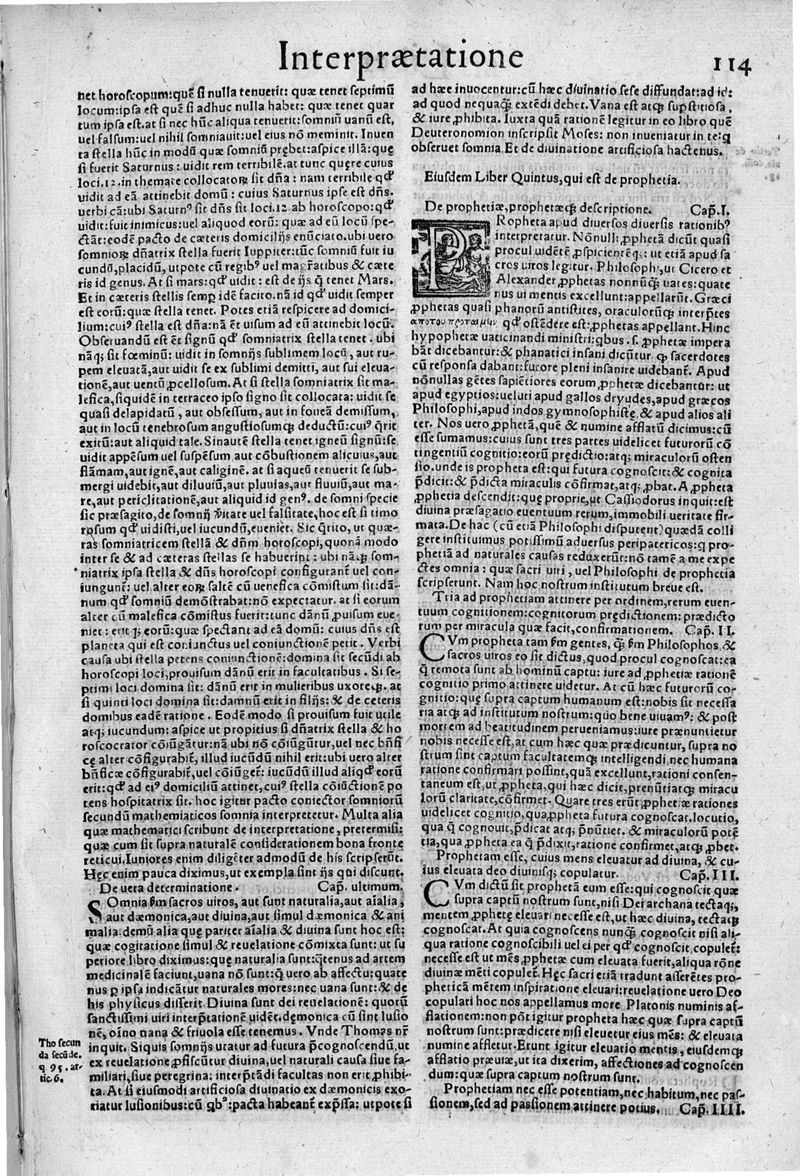 Interprætatione
114
net horoscopum:quę si nulla tenuerit: quæ tenet septimũ
locum:ipsa est quę si adhuc nulla habet: quæ tenet quar
tum ipsa est.at si nec hũc aliqua tenerit: somniũ uanũ est,
uel falsum:uel nihil somniauit:uel eius nõ meminit. Inuen
ta stella hũc in modũ quæ somniũ prębet:aspice illã:quę
si fuerit Saturnus: uidit rem terribilẽ.at tunc quęre cuius
loci.12.in themate collocatoꝝ sit dña: nam terribile qđ
uidit ad eã attinebit domũ: cuius Saturnus ipse est dñs.
uerbi cã:ubi Saturnꝰ sit dñs sit loci.12 ab horoscopo:qđ
uidit:fuit inimicus:uel aliquod eorũ: quæ ad eũ locũ spe-
ctãt:eodẽ pacto de cæteris domicilijs enũciato.ubi uero
somnioꝝ dñatrix stella fuerit Iuppiter:tũc somniũ fuit iu
cundũ,placidũ, utpote cũ regibꝰ uel magr̃atibus & cæte
ris id genus. At si mars:qđ uidit: est de ijs q̃ tenet Mars.
Et in cæteris stellis semp idẽ facito.nã id qđ uidit semper
est eorũ:quæ stella tenet. Potes etiã respicere ad domici-
lium:cuiꝰ stella est dña:nã ẽt uisum ad eũ attinebit locũ.
Obseruandũ est ẽt signũ qđ somniatrix stella tenet. ubi
nãq; sit fœminũ: uidit in somnijs sublimem locũ, aut ru-
pem eleuatã,aut uidit se ex sublimi demitti, aut sui eleua-
tionẽ,aut uentũ pcellosum. At si stella somniatrix sit ma-
lefica,siquidẽ in terraceo ipso signo sit collocata: uidit se
quasi delapidatũ, aut obsessum, aut in foueã demissum,
aut in locũ tenebrosum angustiosumq; deductũ:cuiꝰ q̃rit
exitũ:aut aliquid tale. Sinautẽ stella tenet igneũ signũ:se
uidit appẽsum uel suspẽsum, aut cõbustionẽ alicuius,aut
flãmam,aut ignẽ,aut caliginẽ. at si aqueũ tenuerit se sub-
mergi uidebit,aut diluuiũ,aut pluuias,aut fluuiũ,aut ma-
re,aut periclitationẽ,aut aliquid id genꝰ. de somni specie
sic præsagito,de somnij ṽitate uel falsitate,hoc est si timo
rosum qđ uidisti,uel iucundũ,eueniet. Sic q̃rito, ut quæ-
ras somniatricem stellã & dñm horoscopi,quonã modo
inter se & ad cæteras stellas se habuerint: ubi nãq; som-
niatrix ipsa stella & dñs horoscopi configurant̃ uel con-
iungunt̃: uel alter eoꝝ saltẽ cũ uenefica cõmistum sit:dã-
num qđ somniũ demõstrabat:nõ expectatur. at si eorum
alter cũ malefica cõmistus fuerit:tunc dãnũ,puisum eue-
niet: erit q; eorũ:quæ spectant ad eã domũ: cuius dñs est
planeta qui est coniunctus uel coniunctionẽ petit. Verbi
causa ubi stella petens coniunctionẽ:domina sit secũdi ab
horoscopi loci,prouisum dãnũ erit in facultatibus. Si se-
ptimi loci domina sit: dãnũ erit in mulieribus uxoreq;. at
si quinti loci domina sit:damnũ erit in filijs: & de ceteris
domibus eadẽ ratione. Eodẽ modo si prouisum fuit utile
atq; iucundum: aspice ut propitius si dñatrix stella & ho
roscocrator cõiũgãtur:nã ubi nõ cõiũgãtur,uel nec bñfi
cę alter cõfigurabit̃, illud iucũdũ nihil erit:ubi uero alter
bñficæ cõfigurabit̃,uel cõiũget̃: iucũdũ illud aliqđ eorũ
erit:qđ ad eiꝰ domiciliũ attinet,cuiꝰ stella cõiũctionẽ po
tens hospitatrix sit. hoc igitur pacto coniector somniorũ
secundũ mathematicos somnia interpretetur. Multa alia
quæ mathematici scribunt de interpretatione, pretermisi:
quæ cum sit supra naturalẽ considerationem bona fronte
reticui.Iuniores enim diligẽter admodũ de his scripserũt.
Hęc enim pauca diximus,ut exempla sint ijs qui discunt.
De uera determinatione. Cap̃. ultimum.
SOmnia ẽm sacros uiros, aut sunt naturalia,aut aĩalia,
aut dæmonica,aut diuina,aut simul dæmonica & ani
malia.demũ alia quę pariter aĩalia & diuina sunt hoc est:
quæ cogitatione simul & reuelatione cõmixta sunt: ut su
periore libro diximus:quę naturalia sunt:q̃tenus ad artem
medicinalẽ faciunt,uana nõ sunt:q̃ uero ab affectu:quate
nus p ipsa indicãtur naturales mores:nec uana sunt:& de
his physicus disserit. Diuina sunt dei reuelatione: quorũ
sanctissimi uiri interp̃tationẽ uidẽt.dęmonica cũ sint lusio
nẽ, oĩno uana & friuola esse tenemus. Vnde Thomas nr̃
inquit. Siquis somnijs utatur ad futura p̃cognoscendũ,ut
ex reuelatione pficũtur diuina,uel naturali causa siue fa-
miliari,siue peregrina: interp̃tãdi facultas non erit phibi-
ta. At si eiusmodi artificiosa diuinatio ex dæmonicis exo-
riatur lusionibus:cũ qbꝰ:pacta habeant̃ exp̃ssa: utpote si
Tho secun
da secũde.
q 95. ar-
tic.6.
ad hæc inuocentur:cũ hæc diuinatio sese diffundat:ad id:
ad quod nequaq̃; extẽdi debet. Vana est atq; sup̃stitiosa,
& iure phibita. Iuxta quã rationẽ legitur in eo libro quẽ
Deuteronomion inscripsit Moses: non inueniatur in te:q
obseruet somnia.Et de diuinatione artificiosa hactenus.
Eiusdem Liber Quintus,qui est de prophetia.
De prophetiæ,prophetæq; descriptione. Cap̃.I.
PRopheta apud diuersos diuersis rationibꝰ
interpretatur. Nõnulli pphetã dicũt quasi
procul uidẽtẽ pspicientẽq;: ut etiã apud sa
cros uiros legitur. Philosophi,ut Cicero et
Alexander pphetas nonnũq̃; uates: quate
nus ui mentis excellunt:appellarũt. Gręci
pphetas quasi phanorũ antistites, oraculorũq; interp̃tes
qđ ostẽdere est:pphetas appellant. Hinc
hypophetæ uaticinandi ministri:qbus.s.pphetæ impera
bãt dicebantur:& phanatici insani dicũtur q; sacerdotes
cũ responsa dabant:furore pleni insanire uidebant̃. Apud
nõnullas gẽtes sapiẽtiores eorum,pphetæ dicebantur: ut
apud egyptios:ueluti apud gallos dryudes,apud græcos
Philosophi,apud indos gymnosophistę,& apud alios ali
ter. Nos uero pphetã,quẽ & numine afflatũ dicimus:cũ
esse sumamus:cuius sunt tres partes uidelicet futurorũ cõ
tingentiũ cognitio:eorũ prędictio:atq; miraculorũ osten
sio.unde is propheta est:qui futura cognoscit:& cognita
p̃dicit:& p̃dicta miraculis cõfirmat,atq; pbat. A ppheta
pphetia descendit:quę proprie,ut Cassiodorus inquit:est
diuina præsagatio euentuum rerum,immobili ueritate fir-
mata.De hac (cũ etiã Philosophi disputent)quædã colli
gere instituimus potissimũ aduersus peripaceticos:q pro-
phetiã ad naturales causas reduxerũt:nõ tamẽ a me expe
ctes omnia: quæ sacri uiri,uel Philosophi de prophetia
scripserunt. Nam hoc nostrum institutum breue est.
Tria ad prophetiam attinere per ordinem,rerum euen-
tuum cognitionem:cognitorum prędictionem:prædicto
rum per miracula quæ facit,confirmationem. Cap̃. II.
CVm propheta tam ẽm gentes,q̃; ẽm Philosophos &
sacros uiros eo sit dictus,quod procul cognoscat:ea
q̃ remota sunt ab hominũ captu: iure ad pphetiæ rationẽ
cognitio primo attinere uidetur. At cũ hæc futurorũ co-
gnitio:quę supra captum humanum est:nobis sit necessa
ria atq; ad institutum nostrum:quo bene uiuam̃: & post
mortem ad beatitudinem perueniamus:iure prænuntietur
nobis necesse est,at cum hæc quæ prædicuntur, supra no
strum sint captum facultatemq; intelligendi,nec humana
ratione confirmari possint,quã excellunt,rationi consen-
taneum est,ut ppheta,qui hæc dicit,prenũtiatq; miracu
lorũ claritate,cõfirmet. Quare tres erũt pphetiæ rationes
uidelicet cognitio,qua ppheta futura cognoscat.locutio,
qua q̃ cognouit,p̃dicat atq; p̃nũtiet. & miraculorũ potẽ
tia,qua ppheta ea q̃ p̃dixit,ratione confirmet,atq; pbet.
Prophetam esse, cuius mens eleuatur ad diuina, & cu-
ius eleuata deo diuinisq; copulatur. Cap̃. III.
CVm dictũ sit prophetã eum esse:qui cognoscit quæ
supra captũ nostrum sunt,nisi Dei archana tectaq;,
mentem pphetę eleuari necesse est,ut hæc diuina, tectaq;
cognoscat. At quia cognoscens nunq̃; cognoscit nisi ali-
qua ratione cognoscibili uel ei per qđ cognoscit,copulet̃:
necesse est ut mẽs pphetæ cum eleuata fuerit,aliqua rõne
diuinæ mẽti copulet̃. Hęc sacri etiã tradunt asserẽtes pro-
pheticã mẽtem inspiratione eleuari:reuelatione uero Deo
copulari hoc nos appellamus more Platonis numinis af-
flationem:non põt igitur propheta hæc quæ supra captũ
nostrum sunt:prædicere nisi eleuetur eius mẽs: & eleuata
numine affletur.Erunt igitur eleuatio mentis, eiusdemq;
afflatio præuiæ,ut ita dixerim, affectiones ad cognoscen
dum:quæ supra captum nostrum sunt.
Prophetiam nec esse potentiam,nec habitum,nec pas-
sionem,sed ad passionem attinere potius. Cap̃. IIII.